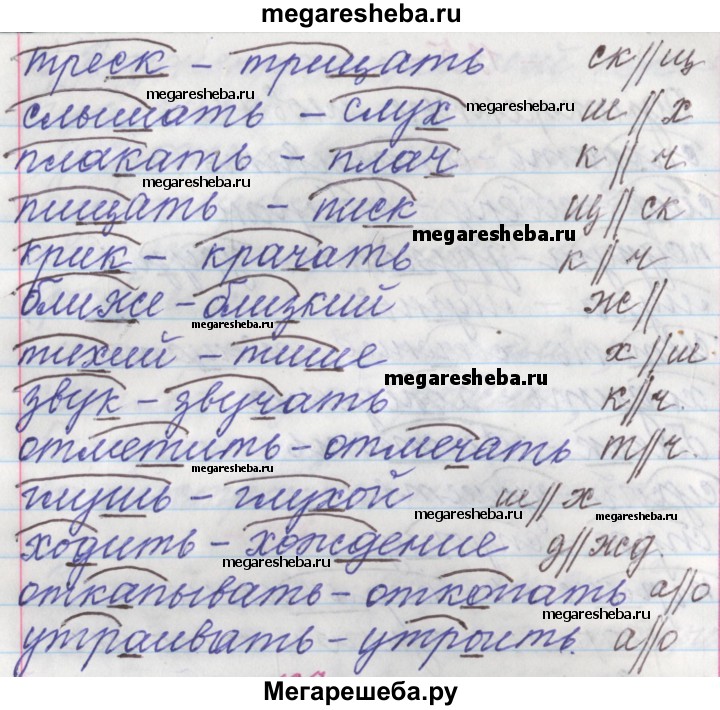 megaresheba.ru
треск – трищать ск//щ
megaresheba.ru megaresheba.ru
слышать – слух ш//х
плакать – плач к//ч
megaresheba.ru
пищать – писк щ//ск
megaresheba.ru
крик – крачать к//ч
ближе – близкий ж//
megaresheba.ru
тихий – тише х//ш
megaresheba.ru
звук – звучать к//ч.
отметить – отмечать т//ч.
megaresheba.ru
глушь – глухой ш//х
megaresheba.ru megaresheba.ru
ходить – хождение д//жд.
megaresheba.ru
откапывать – откопать а//о
megaresheba.ru
утраивать – утроить. а//о
Мегарешеба.ру